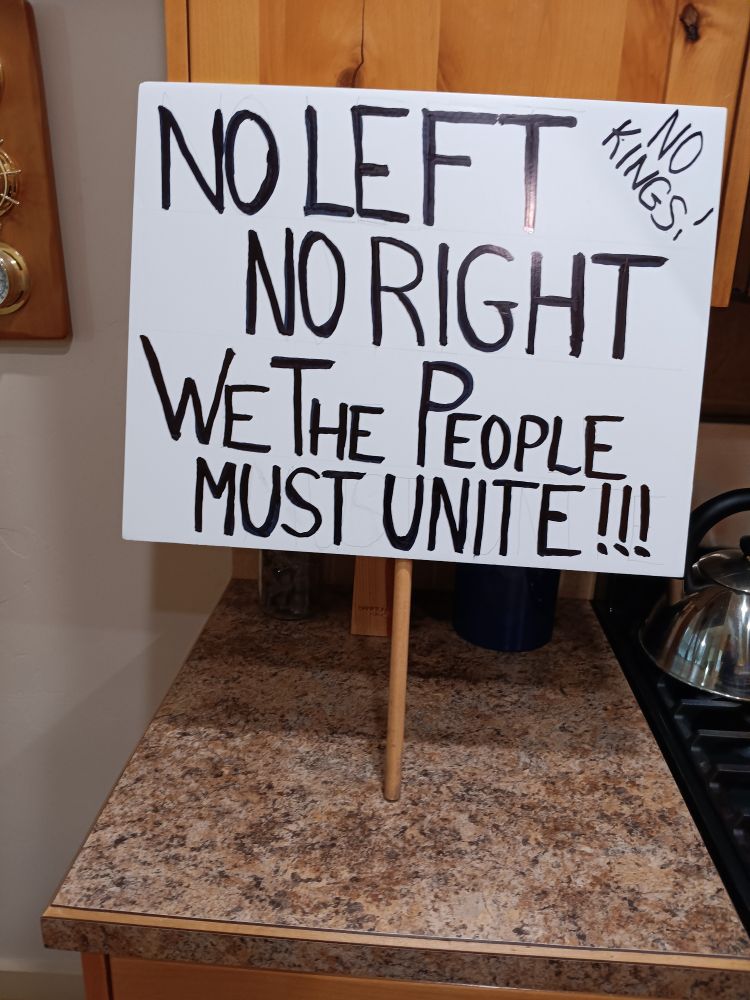 NO LEFT
NO KINGS!
NO RIGHT
WE THE PEOPLE
MUST UNITE!!!